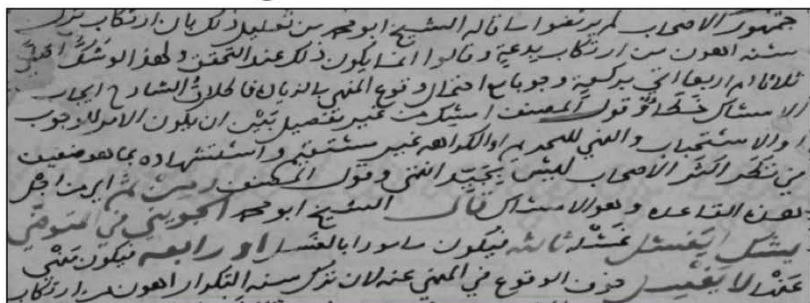 جمهور الاصحاب لم يرتضوا ما قاله الشيخ ابو محمد من تعليل ذلك بان ارتكاب ترك
سنة اهون من ارتكاب بدعة وقالوا انما يكون ذلك عند التحقق ولهذا لو شك اصلى
ثلاثا ام اربعا اتى بركعة وجوبا مع احتمال وقوع المنهي بالزيادة فاطلاق الشارح ايجاب
الامساك خطأ وقول المصنف امسك من غير تفصيل بين ان يكون الامر للوجوب
او الاستحباب والنهي للتحريم او الكراهة غير مستقيم واستشهاده بما هو ضعيف
في نظر اكثر الاصحاب ليس بجيد انتهى وقول المصنف ومن ثم اي من اجل
هذه القاعدة وهو الامساك قال الشيخ ابو محمد الجويني في المتوضي
يشك ايغسل غسلة ثالثة فيكون مامورا بالغسل او رابعة فيكون منهي
عنه لا يغسل خوف الوقوع في المنهي عنه لان ترك سنة التكرار اهون من ارتكاب